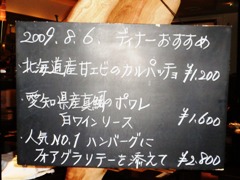 2009.8.6. ディナーおすすめ
・北海道産甘エビのカルパッチョ ¥1,200
・愛知県産真鯛のポワレ
白ワインソース ¥1,600
・人気NO.1 ハンバーグに
フォアグラソテーを添えて ¥2,800